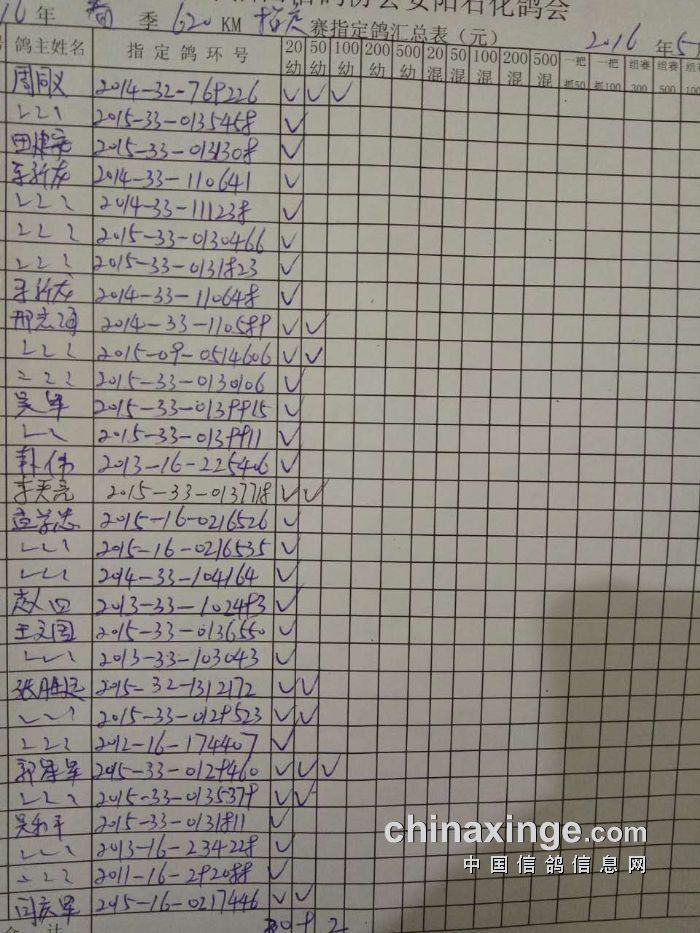 16 年 春 季 620 KM 指定 赛指定鸽汇总表（元） 2016 年 5
鸽主姓名 指定鸽环号 20幼 50幼 100幼 200幼 500幼 20混 50混 100混 200混 500混 一把抓50 一把抓100 组赛300 组赛500 组赛100
周同义 2014-32-769226 ✓ ✓ ✓
2015-33-0135458 ✓
田建 2015-33-0131308 ✓
2014-33-110641 ✓
2014-33-111238 ✓
2015-33-0130466 ✓
2015-33-0131823 ✓
2014-33-110648 ✓
邢志海 2014-33-110589 ✓ ✓
2015-09-0514606 ✓ ✓
2015-33-0130106 ✓
吴军 2015-33-0139915 ✓
2015-33-0139911 ✓
韩伟 2013-16-225406 ✓
李天亮 2015-33-0137718 ✓ ✓
2015-16-0216526 ✓
2015-16-0216535 ✓
2014-33-104164 ✓
赵四 2013-33-102493 ✓
王文国 2015-33-0136550 ✓
2013-33-103043 ✓
张胜 2015-32-1312172 ✓ ✓
2015-33-0129523 ✓ ✓
2012-16-174407 ✓
郭军 2015-33-0129460 ✓ ✓ ✓
2015-33-0135379 ✓ ✓
吴和平 2015-33-0131811 ✓
2013-16-234228 ✓
2011-16-292088 ✓
闫庆军 2015-16-0217446 ✓ ✓
合 计 30 9 2
chinaxinge.com
中国信鸽信息网